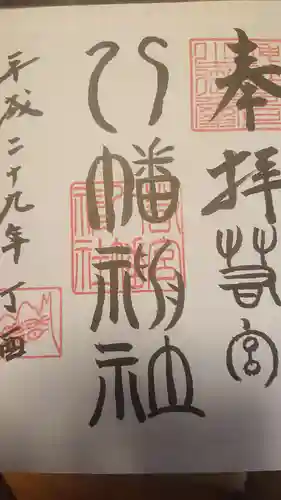 奉拝 若宮
八幡神社
平成二十九年丁酉